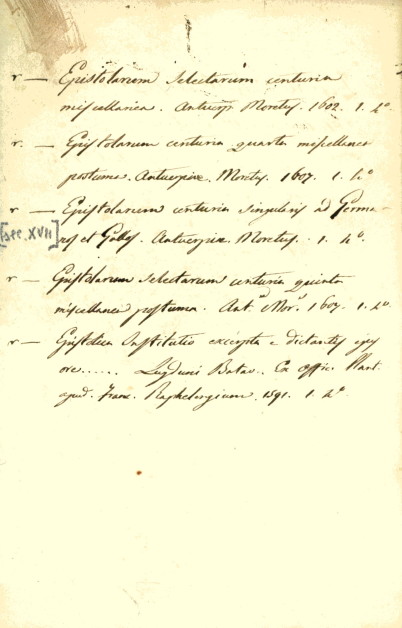 r — Epistolarum selectarum centuria
miscellanea. Antverp. Moretus. 1602. 1. 4º
r. — Epistolarum centuria quarta miscellanea
postuma. Antverpiæ. Moretus. 1607. 1. 4º
r — Epistolarum centuria singularis ad Germa-
[sec. XVII] nos et Gallos. Antverpiæ. Moretus. 1. 4º.
r — Epistolarum selectarum centuria quinta
miscellanea postuma. Ant.æ Mor.s 1607. 1. 4º
r — Epistolica Institutio excepta e dictantis ejus
ore...... Lugduni Batav. Ex offic. Plant.
apud. Franc. Raphelengium. 1591. 1. 4º